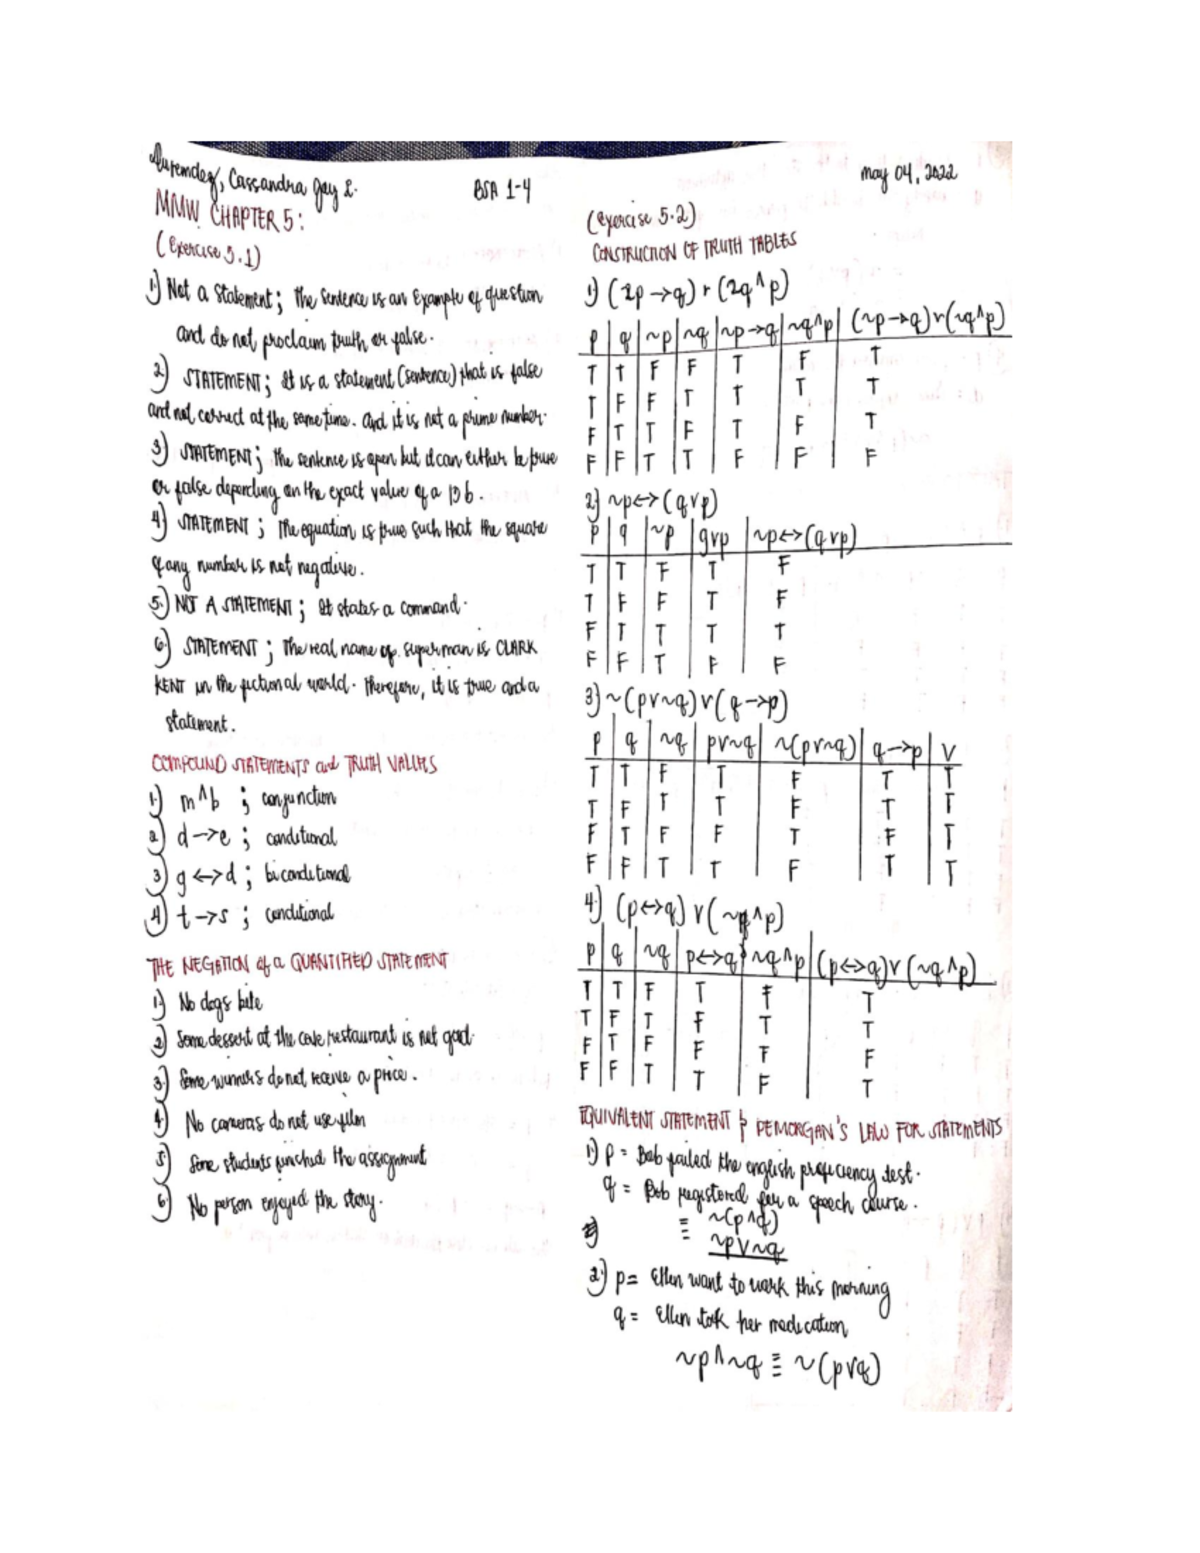 Cassandra Jay L.
BSA 1-4
May 04, 2022
MMW CHAPTER 5:
(Exercise 5.1)
1.) Not a Statement; The sentence is an Example of question
and do not proclaim truth or false.
2) STATEMENT; It is a statement (sentence) that is false
and not correct at the same time. And it is not a prime number.
3) STATEMENT; The sentence is open but it can either be true
or false depending on the exact value of a
4) STATEMENT; The equation is true such that the square
of any number is not negative.
5.) NOT A STATEMENT; It states a command.
6) STATEMENT; The real name of superman is CLARK
KENT in the fictional world. Therefore, it is true and a
statement.
COMPOUND STATEMENTS and TRUTH VALUES
1) m^b ; conjunction
2) d→e ; conditional
3) g↔d ; biconditional
4) t→s ; conditional
THE NEGATION of a QUANTIFIED STATEMENT
1.) No dogs bite
2) Some dessert at the cove restaurant is not good.
3.) Some winners do not receive a price.
4.) No cameras do not use film
5) Some students finished the assignment
6) No person enjoyed the story.
(Exercise 5.2)
CONSTRUCTION OF TRUTH TABLES
1) (2p→q) r (2q^p)
p q ~p ~q ~p→q ~q^p (~p→q)v(~q^p)
T T F F T F T
T F F T T T T
F T T F T F T
F F T T F F F
2) ~p↔(qvp)
p q ~p qvp ~p↔(qvp)
T T F T F
T F F T F
F T T T T
F F T F F
3) ~(pv~q)v(q→p)
p q ~q pv~q ~(pv~q) q→p V
T T F T F T T
T F T T F T T
F T F F T F T
F F T T F T T
4) (p↔q)v(~q^p)
p q ~q p↔q ~q^p (p↔q)v(~q^p)
T T F T F T
T F T F T T
F T F F F F
F F T T F T
EQUIVALENT STATEMENT & DEMORGAN'S LAW FOR STATEMENTS
1) p = Bob failed the english proficiency test.
q = Bob registered for a speech course.
≡ ~(p^q)
~pv~q
2.) p= Ellen want to work this morning
q= Ellen took her medication
~p^~q ≡ ~(pvq)